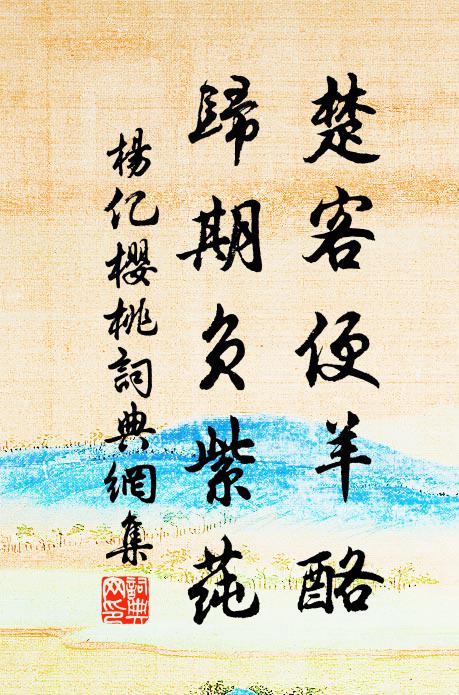 楚客便羊酪
歸期负紫莼
楊亿櫻桃詞典網集
詞典
网印